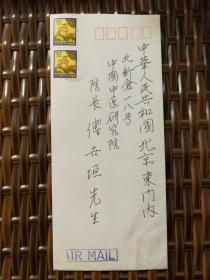 中華人民共和國北京東門內
北新倉一八号
中國中医研究院
院長 傅世垣 先生
AIR MAIL